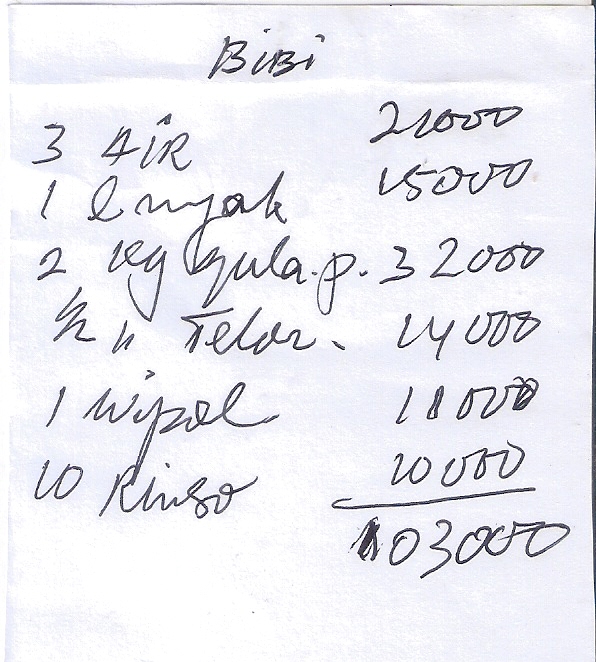 BiBi
3 AiR 21000
1 l myak 15000
2 kg gula.p. 32000
1/2 " Telor. 14000
1 wipol 11000
10 Rinso 10000
103000